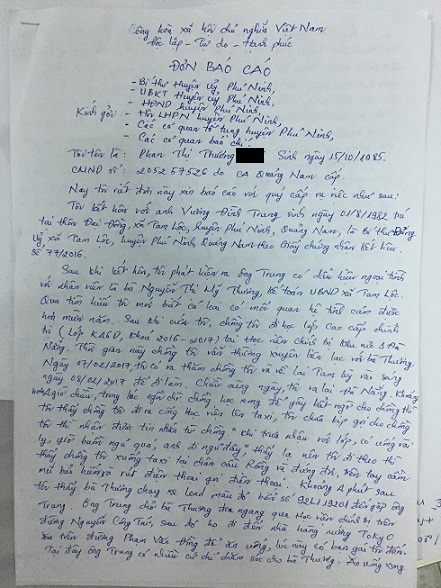 Cộng hòa xã hội chủ nghĩa Việt Nam
Độc lập - Tự do - Hạnh phúc
ĐƠN BÁO CÁO
- Bí thư Huyện ủy Phú Ninh,
- UBKT Huyện ủy Phú Ninh,
- HĐND huyện Phú Ninh,
Kính gởi: - Hội LHPN huyện Phú Ninh,
- Các cơ quan tố tụng huyện Phú Ninh,
- Các cơ quan báo chí.
Tôi tên là: Phan Thị Thương Sinh ngày 15/10/1985.
CMND số: 205257526 do CA Quảng Nam cấp.
Nay tôi viết đơn này xin báo cáo với quý cấp ra việc như sau:
Tôi kết hôn với anh Vương Đình Trung sinh ngày 01/8/1982 trú
tại thôn Đại Đồng, xã Tam Lộc, huyện Phú Ninh, Quảng Nam, là Bí thư Đảng
ủy xã Tam Lộc, huyện Phú Ninh, Quảng Nam theo Giấy chứng nhận kết hôn
số 77/2016.
Sau khi kết hôn, tôi phát hiện ra ông Trung có dấu hiệu ngoại tình
với nhân viên là bà Nguyễn Thị Mỹ Thương, kế toán UBND xã Tam Lộc.
Qua tìm hiểu tôi mới biết cả hai có mối quan hệ tình cảm được
hơn mười năm. Sau khi cưới tôi, chồng tôi đi học lớp cao cấp chính
trị (Lớp K46D, khóa 2016-2017) tại Học viện chính trị khu vực 3 Đà
Nẵng. Thời gian này chồng tôi vẫn thường xuyên liên lạc với bà Thương.
Ngày 07/02/2017 tôi có ra thăm chồng tôi và về lại Tam Kỳ vào sáng
ngày 08/02/2017 để đi làm. Chiều cùng ngày, tôi ra lại Đà Nẵng. Khoảng
giờ chiều, trong lúc ngồi chờ chồng học xong để gây bất ngờ cho chồng thì
tôi thấy chồng tôi đi ra cổng học viện lên taxi, tôi chưa kịp gọi cho chồng
tôi thì nhận được tin nhắn từ chồng "khi trưa nhậu với lớp, có uống vài
ly, giờ buồn ngủ quá, anh đi ngủ đây", thấy lạ nên tôi đi theo thì
thấy chồng tôi xuống taxi tại chân cầu Rồng và đứng đợi, trên tay cầm
mũ bảo hiểm và rút điện thoại gọi điện thoại. Khoảng 1 phút sau
tôi thấy bà Thương chạy xe Lead màu đỏ biển số 92L1 9201 đến gặp ông
Trung. Ông Trung chở bà Thương đi ngang qua Học viện chính trị trên
đường Nguyễn Công Trứ, sau đó họ đi đến nhà hàng nướng Tokyo
trên đường Phạm Văn Đồng để ăn uống, lúc này có bạn gái tôi đến.
Tại đây ông Trung có nhiều cử chỉ chăm sóc cho bà Thương. Ăn uống xong